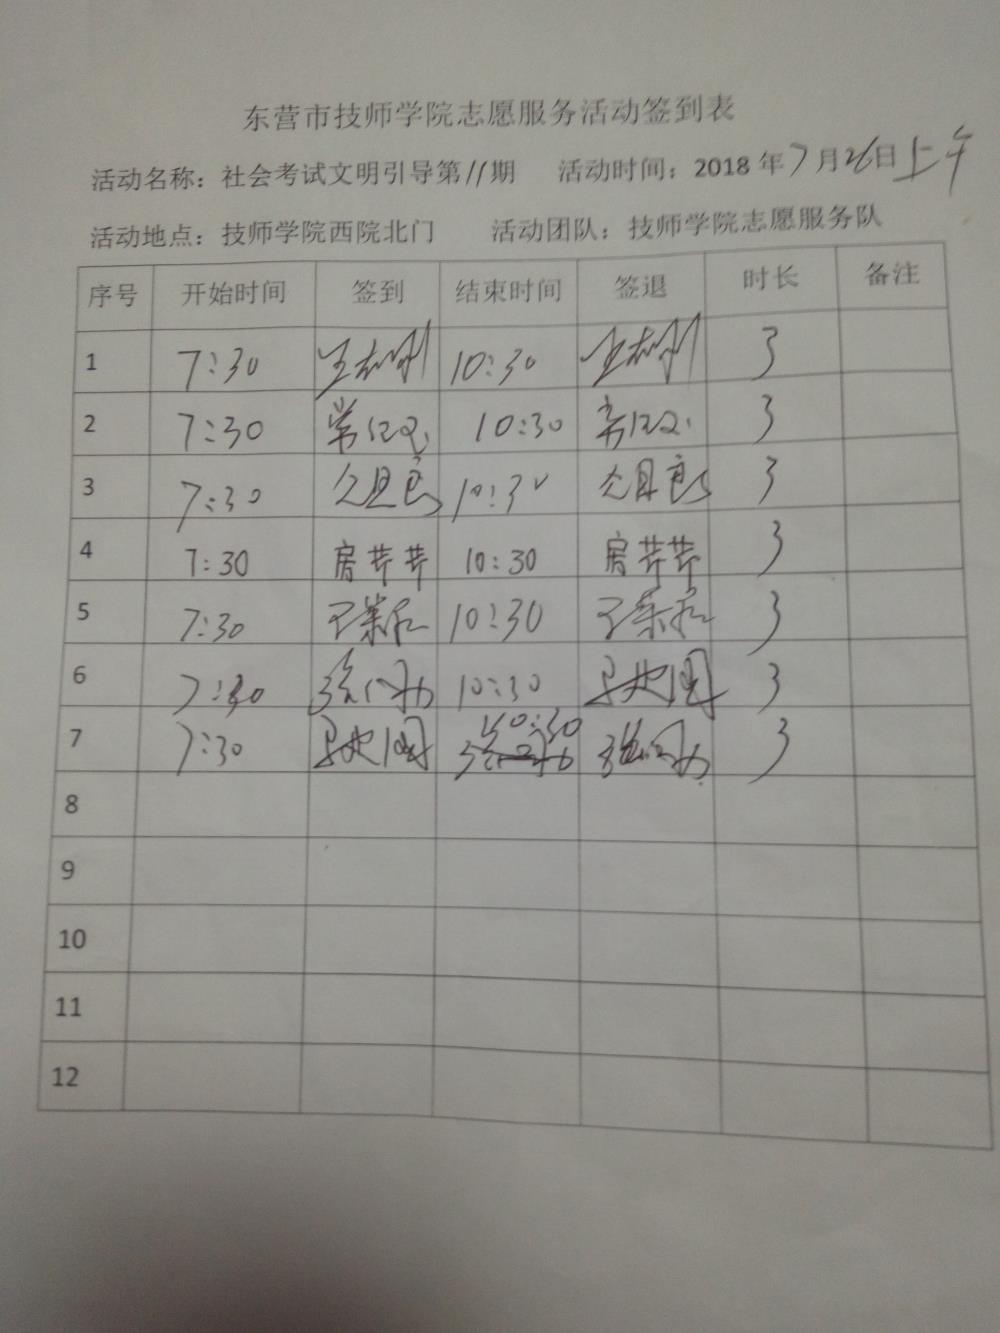 东营市技师学院志愿服务活动签到表
活动名称：社会考试文明引导第11期 活动时间：2018年7月26日上午
活动地点：技师学院西院北门 活动团队：技师学院志愿服务队
序号 开始时间 签到 结束时间 签退 时长 备注
1 7:30 10:30 3
2 7:30 10:30 3
3 7:30 10:30 3
4 7:30 房芹芹 10:30 房芹芹 3
5 7:30 10:30 3
6 7:30 10:30 3
7 7:30 10:30 3
8
9
10
11
12